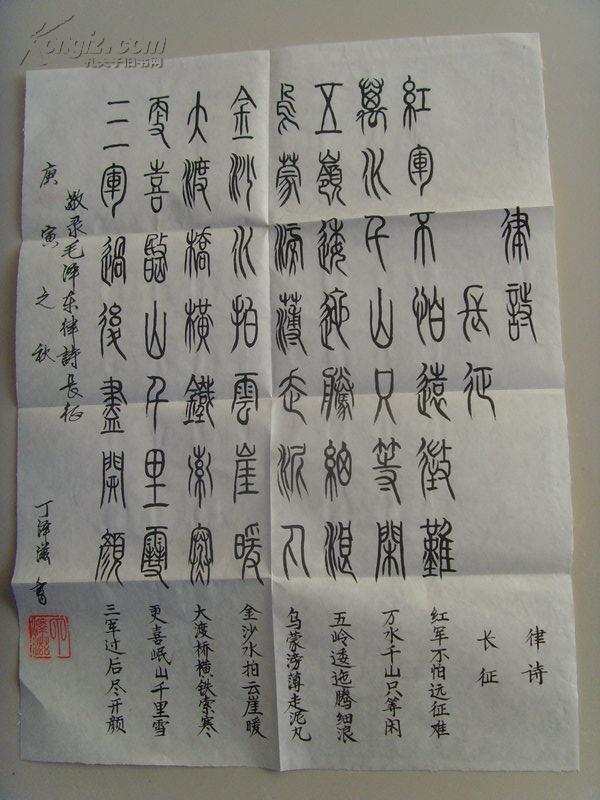 律詩
長征
紅軍不怕遠徵難
萬水千山只等閑
五嶺逶迤騰細浪
烏蒙滂薄走泥丸
金沙水拍雲崖暖
大渡橋橫鐵索寒
更喜岷山千里雪
三軍過後盡開顏
敬录毛泽东律詩長征
庚寅之秋
丁泽滋書
律诗
长征
红军不怕远征难
万水千山只等闲
五岭逶迤腾细浪
乌蒙滂薄走泥丸
金沙水拍云崖暖
大渡桥横铁索寒
更喜岷山千里雪
三军过后尽开颜
Kongfz.com
孔夫子旧书网